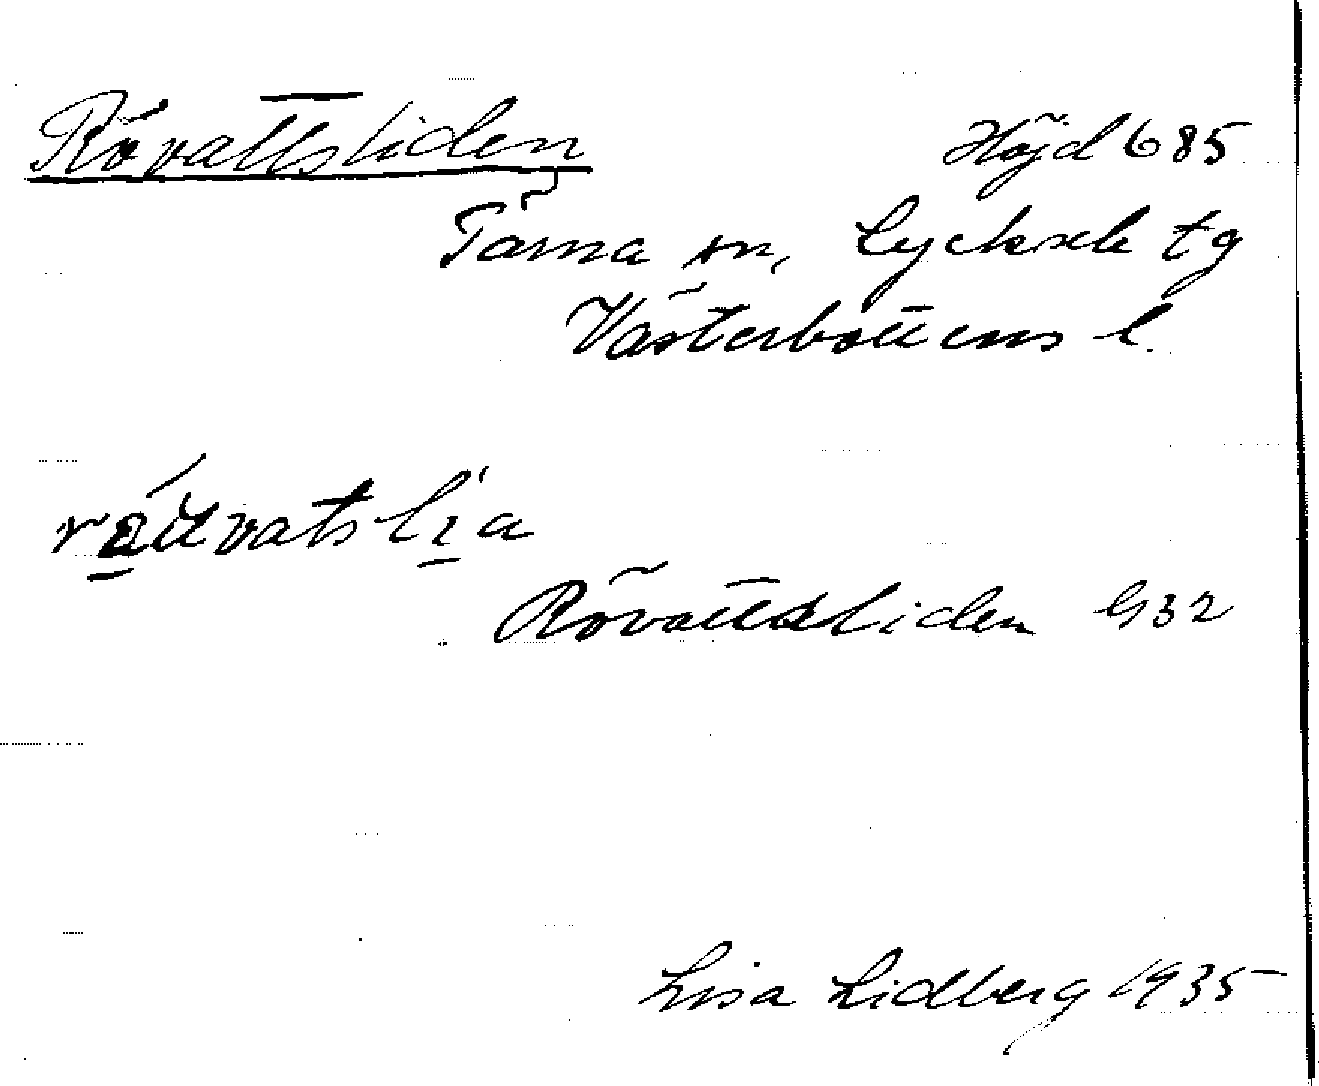 Rövattsliden Höjd 685
Tärna sn, Lycksele tg
Västerbottens l.
Rövattsliden G32
Lisa Lidberg 1935